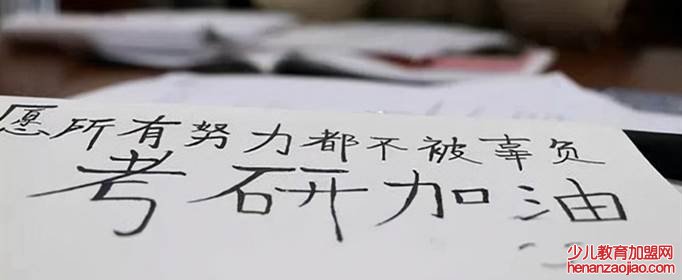 愿所有努力都不被辜负
考研加油
少儿教育加盟网
henanzaojiao.com